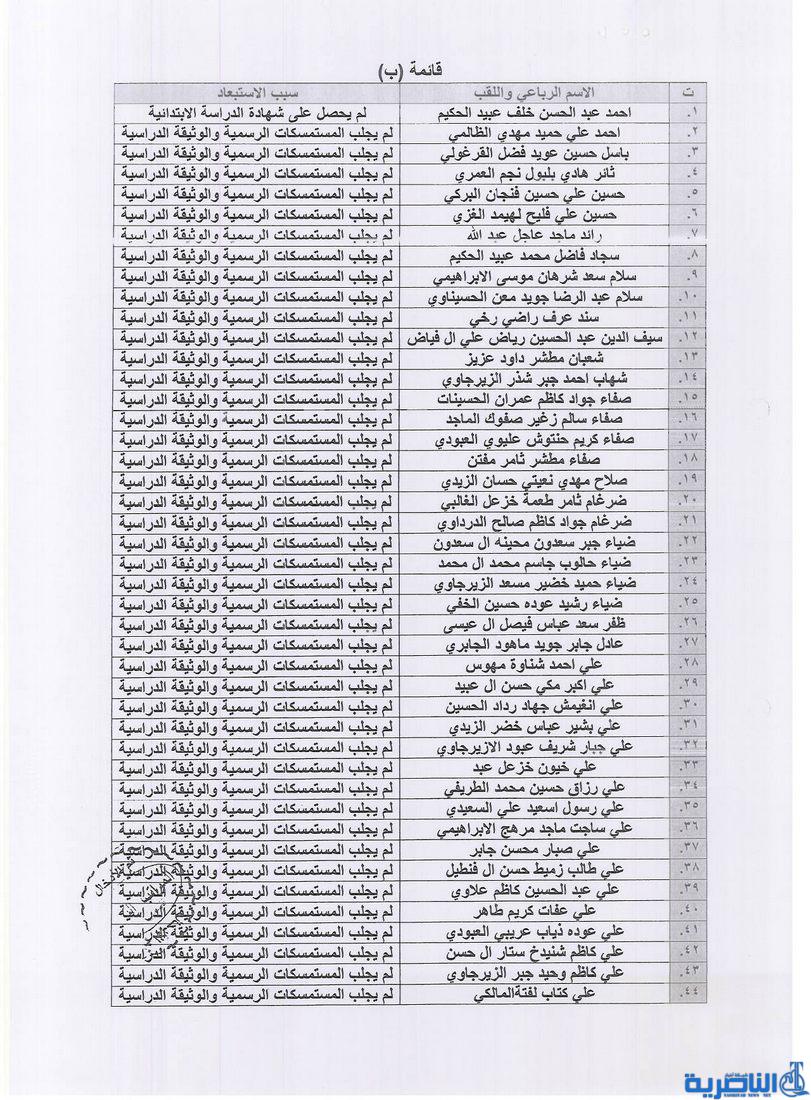 قائمة (ب)
ت الاسم الرباعي واللقب سبب الاستبعاد
١. احمد عبد الحسن خلف عبيد الحكيم لم يحصل على شهادة الدراسة الابتدائية
٢. احمد علي حميد مهدي الظالمي لم يجلب المستمسكات الرسمية والوثيقة الدراسية
٣. باسل حسين عويد فضل القرغولي لم يجلب المستمسكات الرسمية والوثيقة الدراسية
٤. ثائر هادي بلبول نجم العمري لم يجلب المستمسكات الرسمية والوثيقة الدراسية
٥. حسين علي حسين فنجان البركي لم يجلب المستمسكات الرسمية والوثيقة الدراسية
٦. حسين علي فليح لهيمد الغزي لم يجلب المستمسكات الرسمية والوثيقة الدراسية
٧. رائد ماجد عاجل عبد الله لم يجلب المستمسكات الرسمية والوثيقة الدراسية
٨. سجاد فاضل محمد عبيد الحكيم لم يجلب المستمسكات الرسمية والوثيقة الدراسية
٩. سلام سعد شرهان موسى الابراهيمي لم يجلب المستمسكات الرسمية والوثيقة الدراسية
١٠. سلام عبد الرضا جويد معن الحسيناوي لم يجلب المستمسكات الرسمية والوثيقة الدراسية
١١. سند عرف راضي رخي لم يجلب المستمسكات الرسمية والوثيقة الدراسية
١٢. سيف الدين عبد الحسين رياض علي ال فياض لم يجلب المستمسكات الرسمية والوثيقة الدراسية
١٣. شعبان مطشر داود عزيز لم يجلب المستمسكات الرسمية والوثيقة الدراسية
١٤. شهاب احمد جبر شذر الزيرجاوي لم يجلب المستمسكات الرسمية والوثيقة الدراسية
١٥. صفاء جواد كاظم عمران الحسينات لم يجلب المستمسكات الرسمية والوثيقة الدراسية
١٦. صفاء سالم زغير صفوك الماجد لم يجلب المستمسكات الرسمية والوثيقة الدراسية
١٧. صفاء كريم حنتوش عليوي العبودي لم يجلب المستمسكات الرسمية والوثيقة الدراسية
١٨. صفاء مطشر ثامر مفتن لم يجلب المستمسكات الرسمية والوثيقة الدراسية
١٩. صلاح مهدي نعيتي حسان الزيدي لم يجلب المستمسكات الرسمية والوثيقة الدراسية
٢٠. ضرغام ثامر طعمة خزعل الغالبي لم يجلب المستمسكات الرسمية والوثيقة الدراسية
٢١. ضرغام جواد كاظم صالح الدرداوي لم يجلب المستمسكات الرسمية والوثيقة الدراسية
٢٢. ضياء جبر سعدون محينه ال سعدون لم يجلب المستمسكات الرسمية والوثيقة الدراسية
٢٣. ضياء حالوب جاسم محمد ال محمد لم يجلب المستمسكات الرسمية والوثيقة الدراسية
٢٤. ضياء حميد خضير مسعد الزيرجاوي لم يجلب المستمسكات الرسمية والوثيقة الدراسية
٢٥. ضياء رشيد عوده حسين الخفي لم يجلب المستمسكات الرسمية والوثيقة الدراسية
٢٦. ظفر سعد عباس فيصل ال عيسى لم يجلب المستمسكات الرسمية والوثيقة الدراسية
٢٧. عادل جابر جويد ماهود الجابري لم يجلب المستمسكات الرسمية والوثيقة الدراسية
٢٨. علي احمد شناوة مهوس لم يجلب المستمسكات الرسمية والوثيقة الدراسية
٢٩. علي اكبر مكي حسن ال عبيد لم يجلب المستمسكات الرسمية والوثيقة الدراسية
٣٠. علي انغيمش جهاد رداد الحسين لم يجلب المستمسكات الرسمية والوثيقة الدراسية
٣١. علي بشير عباس خضر الزيدي لم يجلب المستمسكات الرسمية والوثيقة الدراسية
٣٢. علي جبار شريف عبود الازيرجاوي لم يجلب المستمسكات الرسمية والوثيقة الدراسية
٣٣. علي خيون خزعل عبد لم يجلب المستمسكات الرسمية والوثيقة الدراسية
٣٤. علي رزاق حسين محمد الطريفي لم يجلب المستمسكات الرسمية والوثيقة الدراسية
٣٥. علي رسول اسعيد علي السعيدي لم يجلب المستمسكات الرسمية والوثيقة الدراسية
٣٦. علي ساجت ماجد مرهج الابراهيمي لم يجلب المستمسكات الرسمية والوثيقة الدراسية
٣٧. علي صبار محسن جابر لم يجلب المستمسكات الرسمية والوثيقة الدراسية
٣٨. علي طالب زميط حسن ال فنطيل لم يجلب المستمسكات الرسمية والوثيقة الدراسية
٣٩. علي عبد الحسين كاظم علاوي لم يجلب المستمسكات الرسمية والوثيقة الدراسية
٤٠. علي عفات كريم طاهر لم يجلب المستمسكات الرسمية والوثيقة الدراسية
٤١. علي عوده ذياب عريبي العبودي لم يجلب المستمسكات الرسمية والوثيقة الدراسية
٤٢. علي كاظم شنيدخ ستار ال حسن لم يجلب المستمسكات الرسمية والوثيقة الدراسية
٤٣. علي كاظم وحيد جبر الزيرجاوي لم يجلب المستمسكات الرسمية والوثيقة الدراسية
٤٤. علي كتاب لفتةالمالكي لم يجلب المستمسكات الرسمية والوثيقة الدراسية
شبكة أخبار
الناصرية
NASIRIYAH NEWS NET